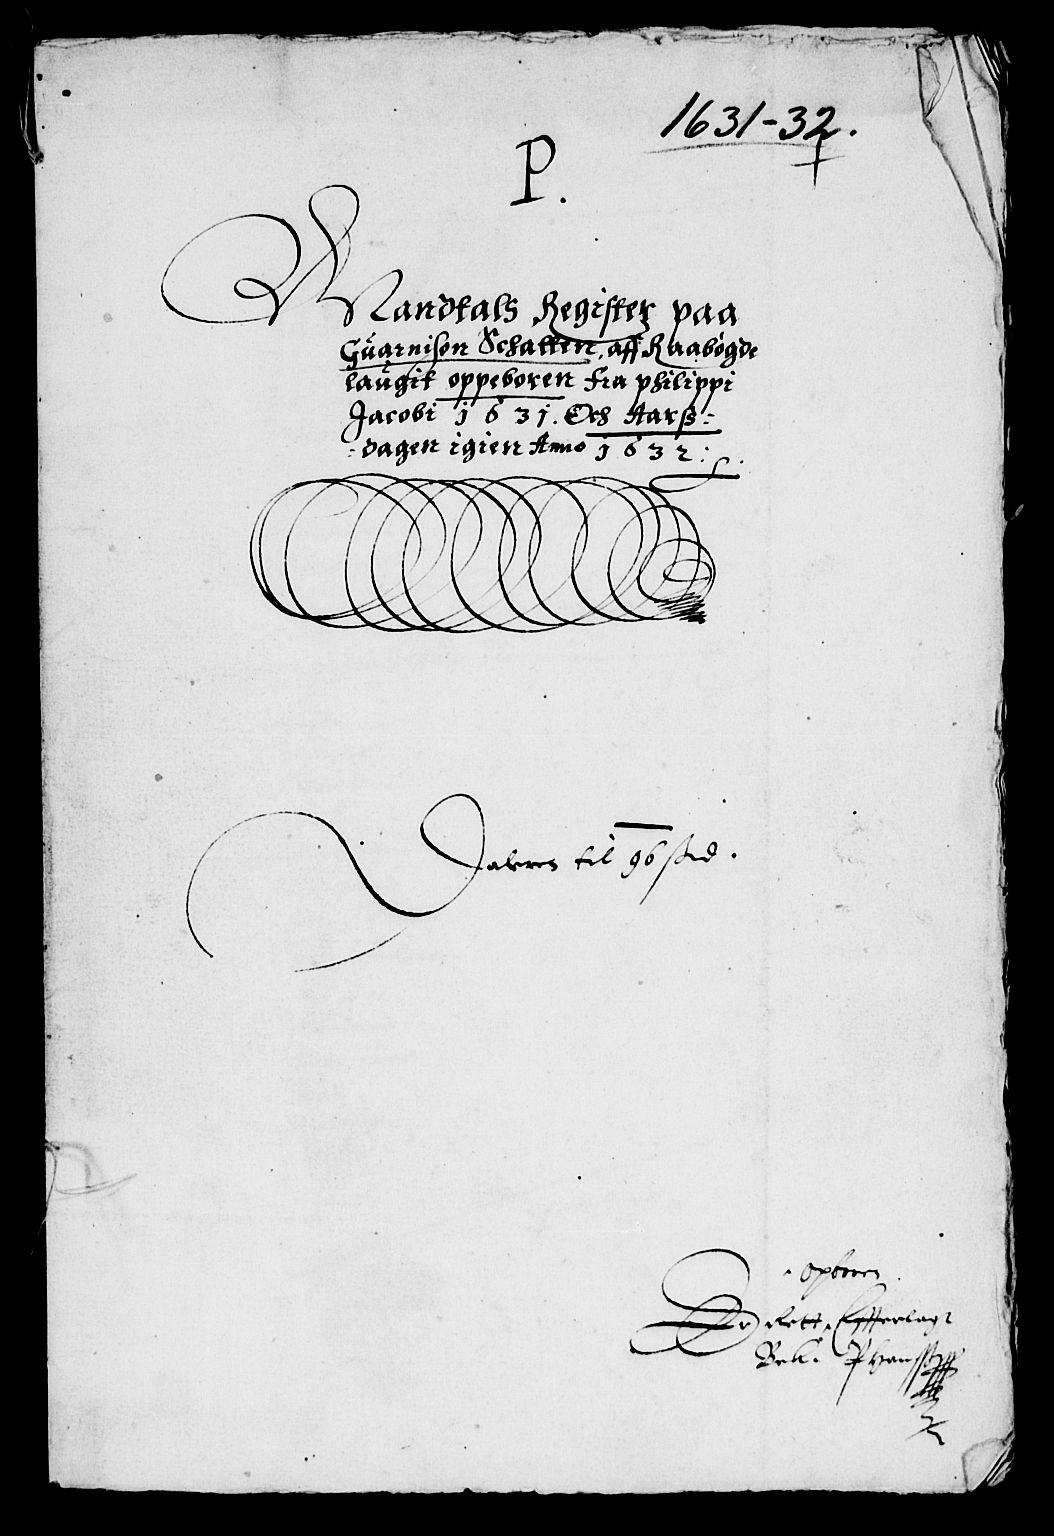 1631-32.
P.
Mandtals Register paa
Guarnison Schatten, aff Raabögde
laugit oppeboren fra philippi
Jacobi 1631. Och Aarß-
-dagen igien Anno 1632:
Daleren til 96 ß
opboren
rett Efferlagt